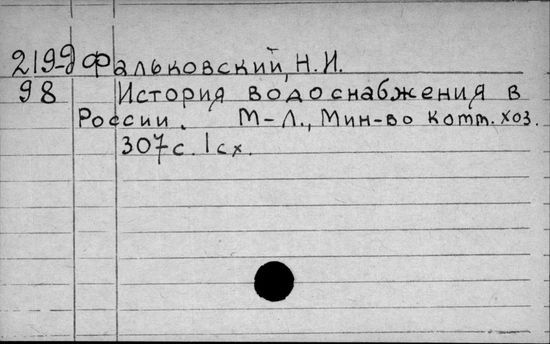 219-9 Фальковский, Н.И.
98 История водоснабжения в
России. М-Л., Мин-во комм. хоз.
307с. 1сх.